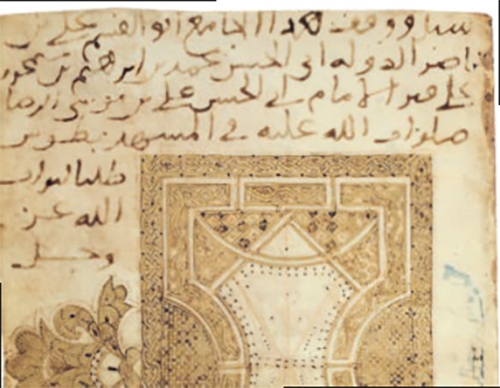 ووقف هذا الجامع ابو القسم علي بن
ناصر الدوله ابي الحسن محمد بن ابرهيم بن سيمجور
علي قبر الامام ابي الحسن علي بن موسى الرضا
صلوات الله عليه في المشهد بطوس
طلبا لثواب
الله عز
وجل